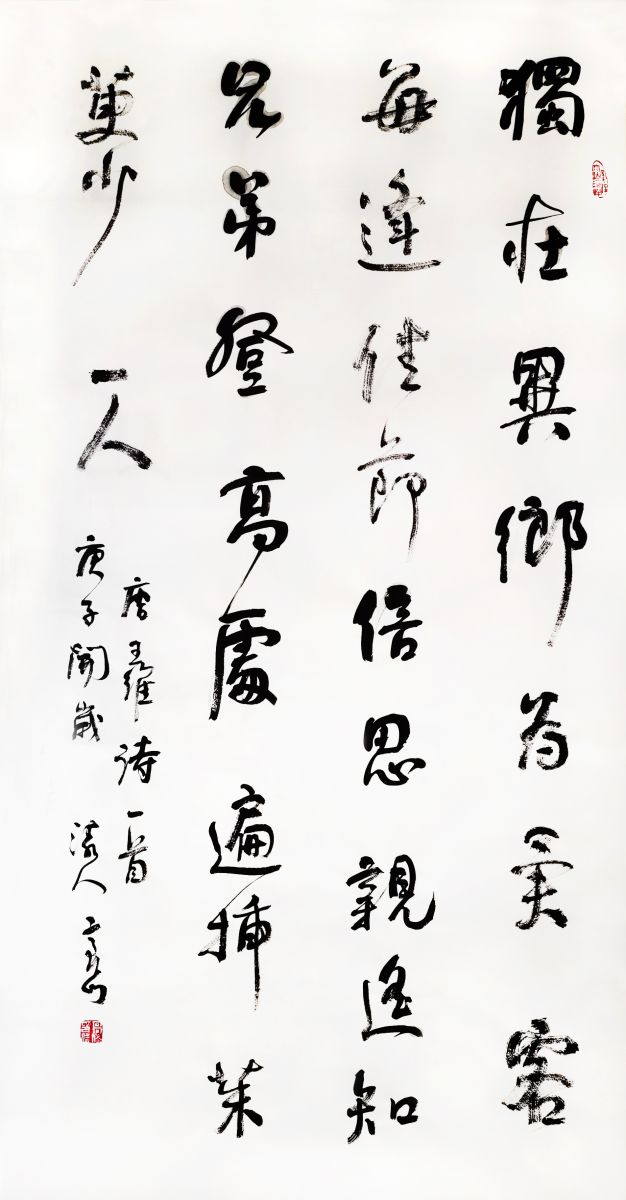 獨在異鄉為異客
每逢佳節倍思親遙知
兄弟登高處遍插茱
萸少一人
唐王維詩一首
庚子開歲